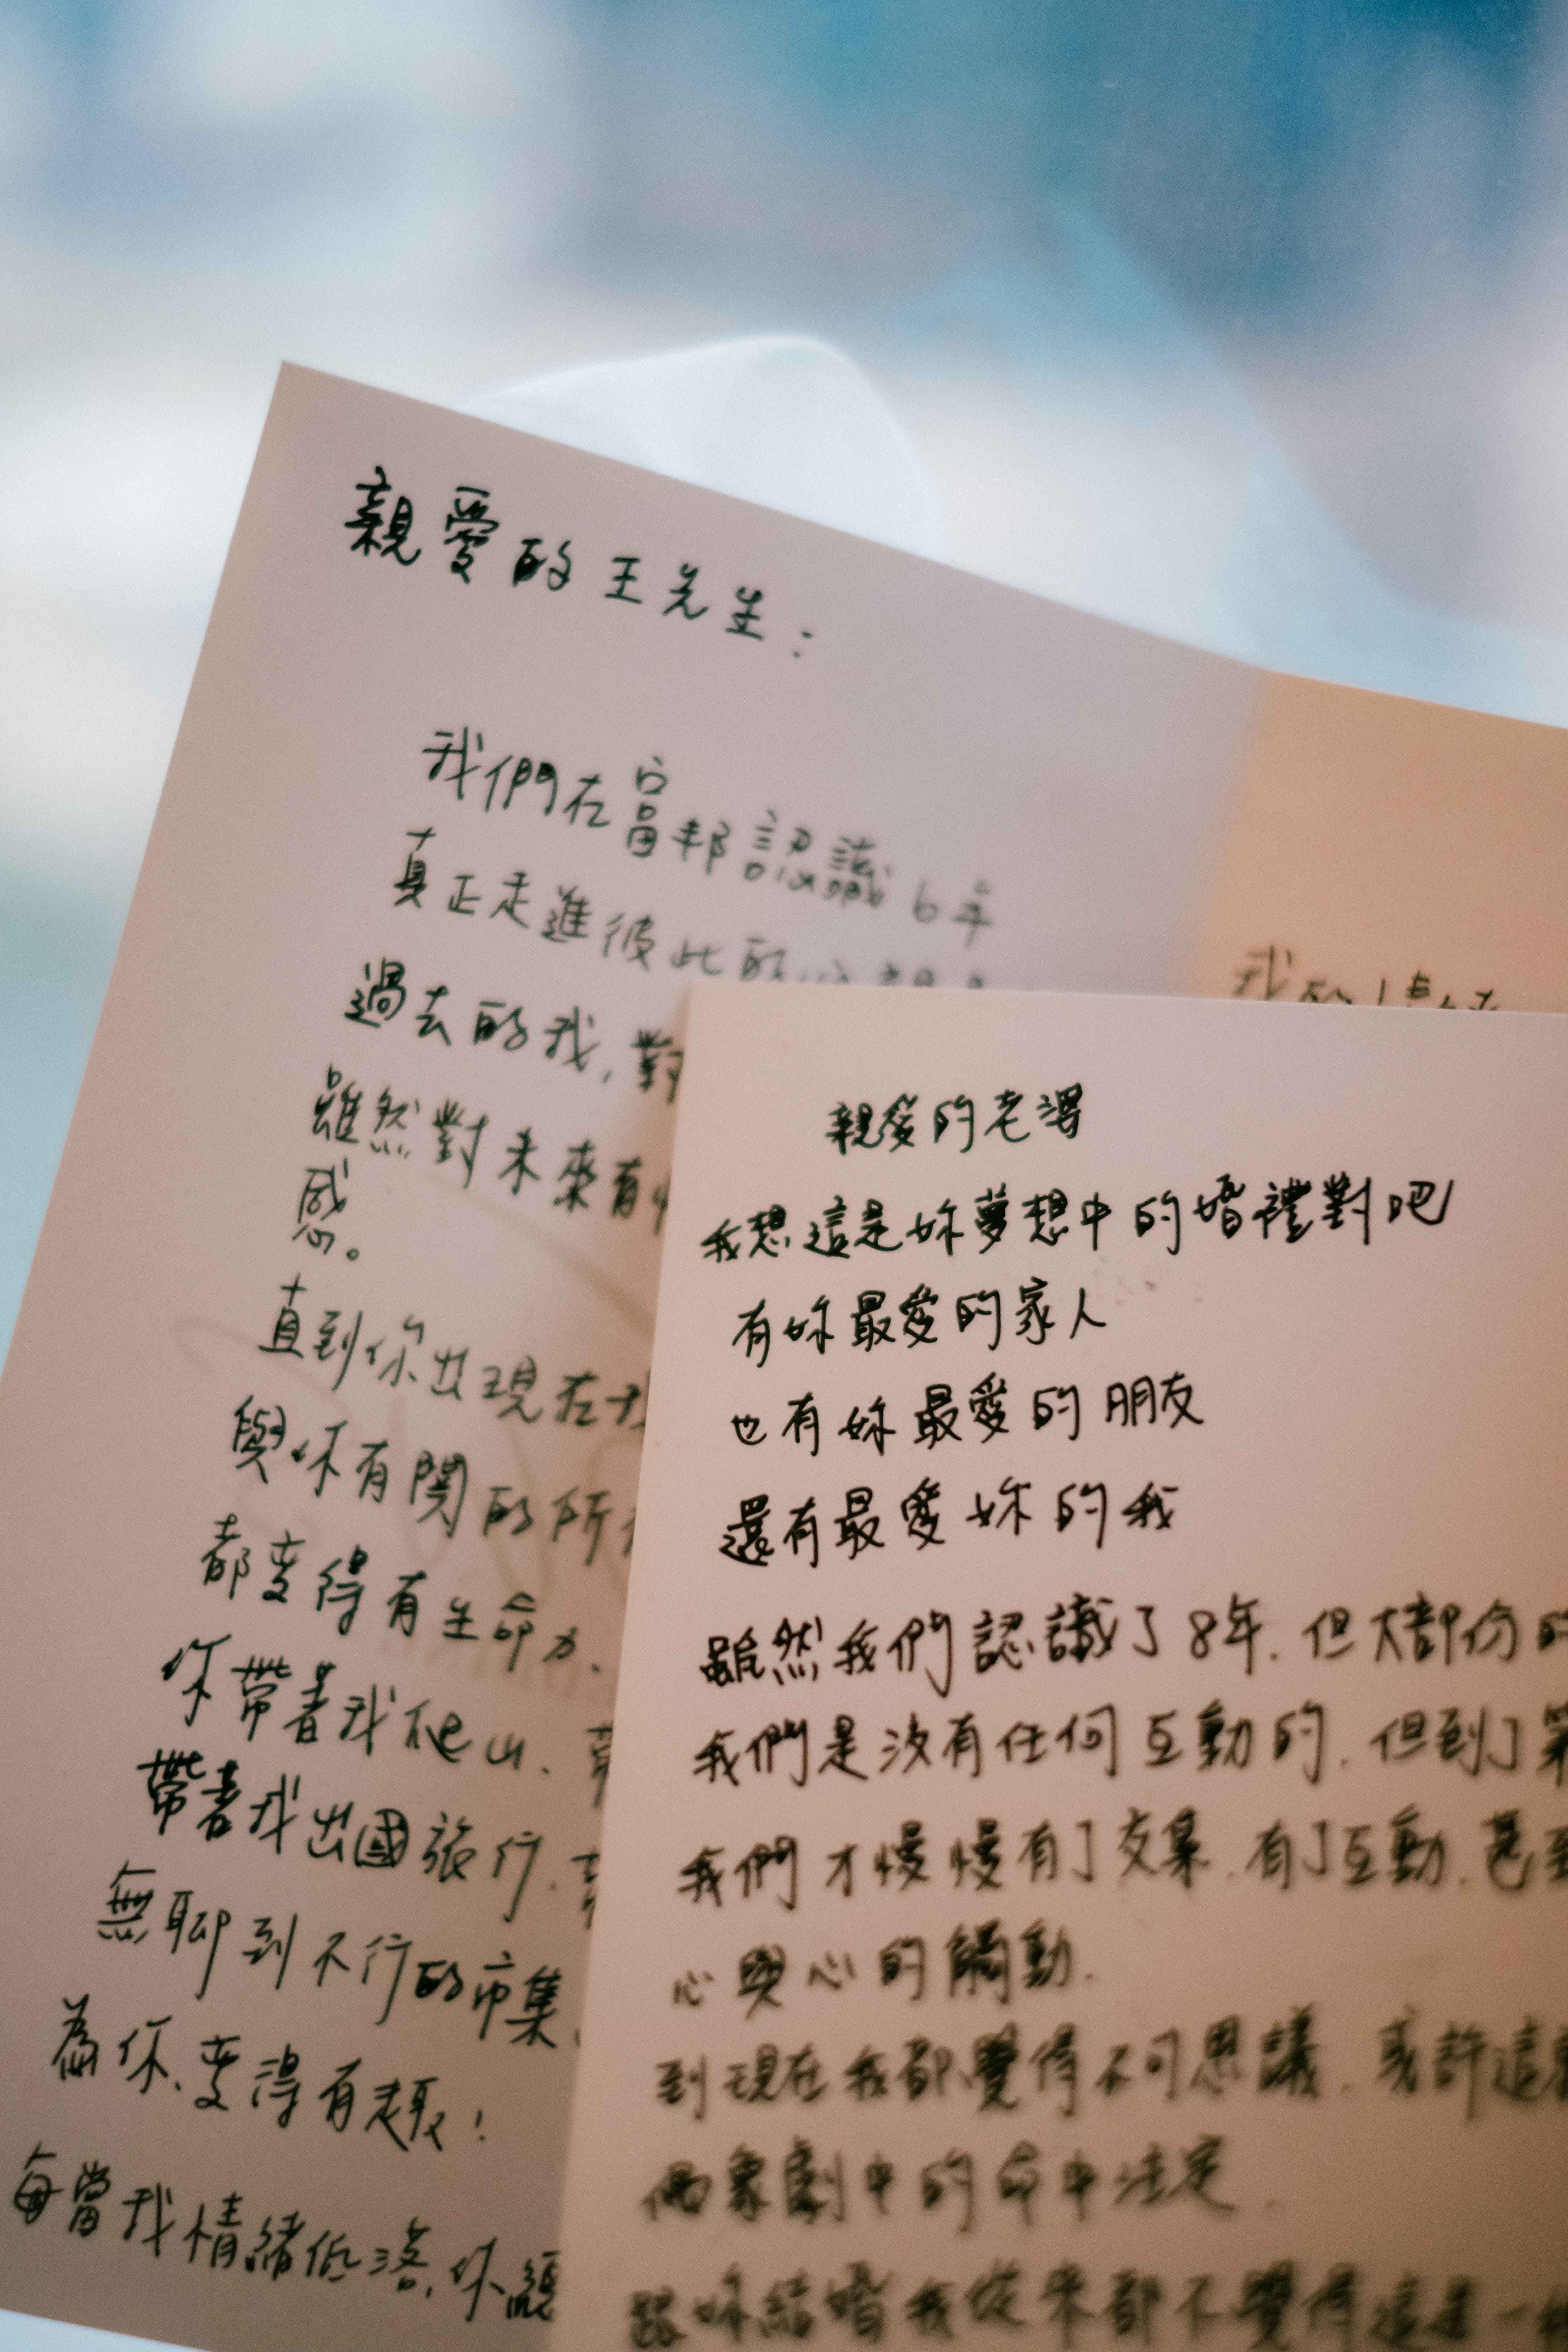 親愛的王先生：
我們在富邦認識6年
真正走進彼此的
過去的我，對
雖然對未來有
感。
直到你出現在我
與你有關的所
都變得有生命力、
你帶著我爬山、
帶著我出國旅行、
無聊到不行的市集、
為你、變得有趣！
每當我情緒低落，你總
我的
親愛的老婆
我想這是妳夢想中的婚禮對吧
有妳最愛的家人
也有妳最愛的朋友
還有最愛妳的我
雖然我們認識了8年，但大部份的
我們是沒有任何互動的，但到了第
我們才慢慢有了交集，有了互動，甚至
心與心的觸動.
到現在我都覺得不可思議，或許這就
偶像劇中的命中注定.
跟妳結婚我從來都不覺得這是一